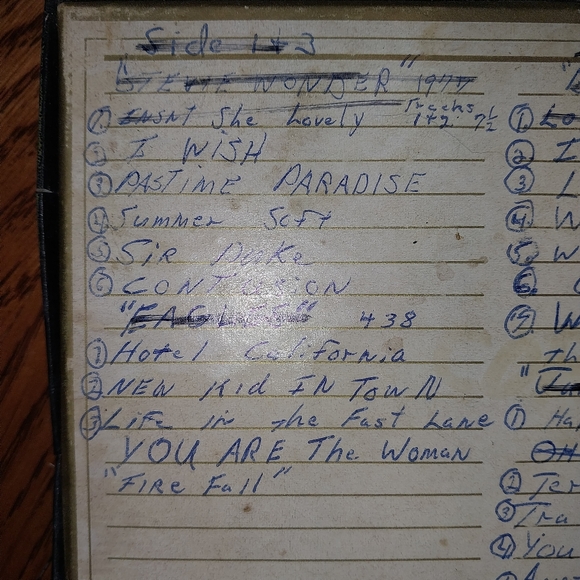 Side 1+3
"STEVIE WONDER" 1977
① ISNT She Lovely Tracks 1+2 7½
② I WISH
③ PASTIME PARADISE
④ Summer Soft
⑤ Sir Duke
⑥ CONTUSION
"EAGLES" 438
① Hotel California
② NEW Kid IN TOWN
③ Life in the Fast Lane
YOU ARE The Woman
"FIRE Fall"
① Lo
② I
③
④ W
⑤ W
⑥
⑦ W
Th
"
① Ha
OH
② Ter
③ Tra
④ You